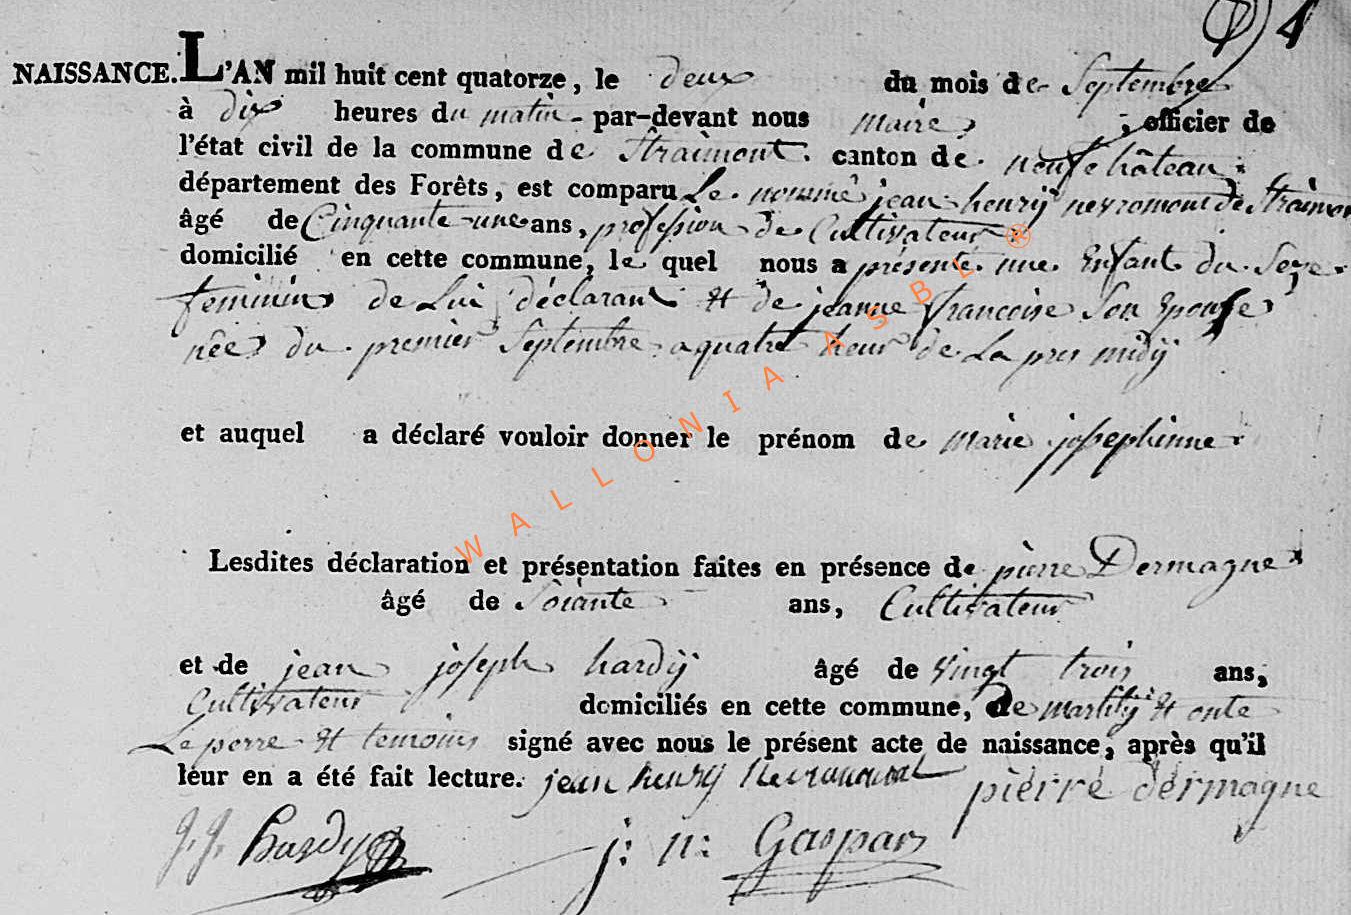 4
NAISSANCE. L'AN mil huit cent quatorze, le deux du mois de Septembre
à dix heures du matin par-devant nous maire, officier de
l'état civil de la commune de Straimont. canton de neufchâteau
département des Forêts, est comparu Le nommé jean henrÿ nevromont de Straimon
âgé de Cinquante une ans, profession de Cultivateur
domicilié en cette commune, le quel nous a présenté une Enfant du Sexe
feminin de Lui déclarant et de jeanne francoise Son Epouse
née du premier Septembre a quatre heur de La pres midÿ
et auquel a déclaré vouloir donner le prénom de Marie josephinne
Lesdites déclaration et présentation faites en présence de pierre Dermagne
âgé de Soiante ans, Cultivateur
et de jean joseph hardÿ âgé de Vingt trois ans,
Cultivateur domiciliés en cette commune, de martilÿ et onte
Le perre et temoins signé avec nous le présent acte de naissance, après qu'il
leur en a été fait lecture. jean henrÿ nevromont pierre dermagne
j. j. hardy j: n: Gaspar
WALLONIA ASBL ®